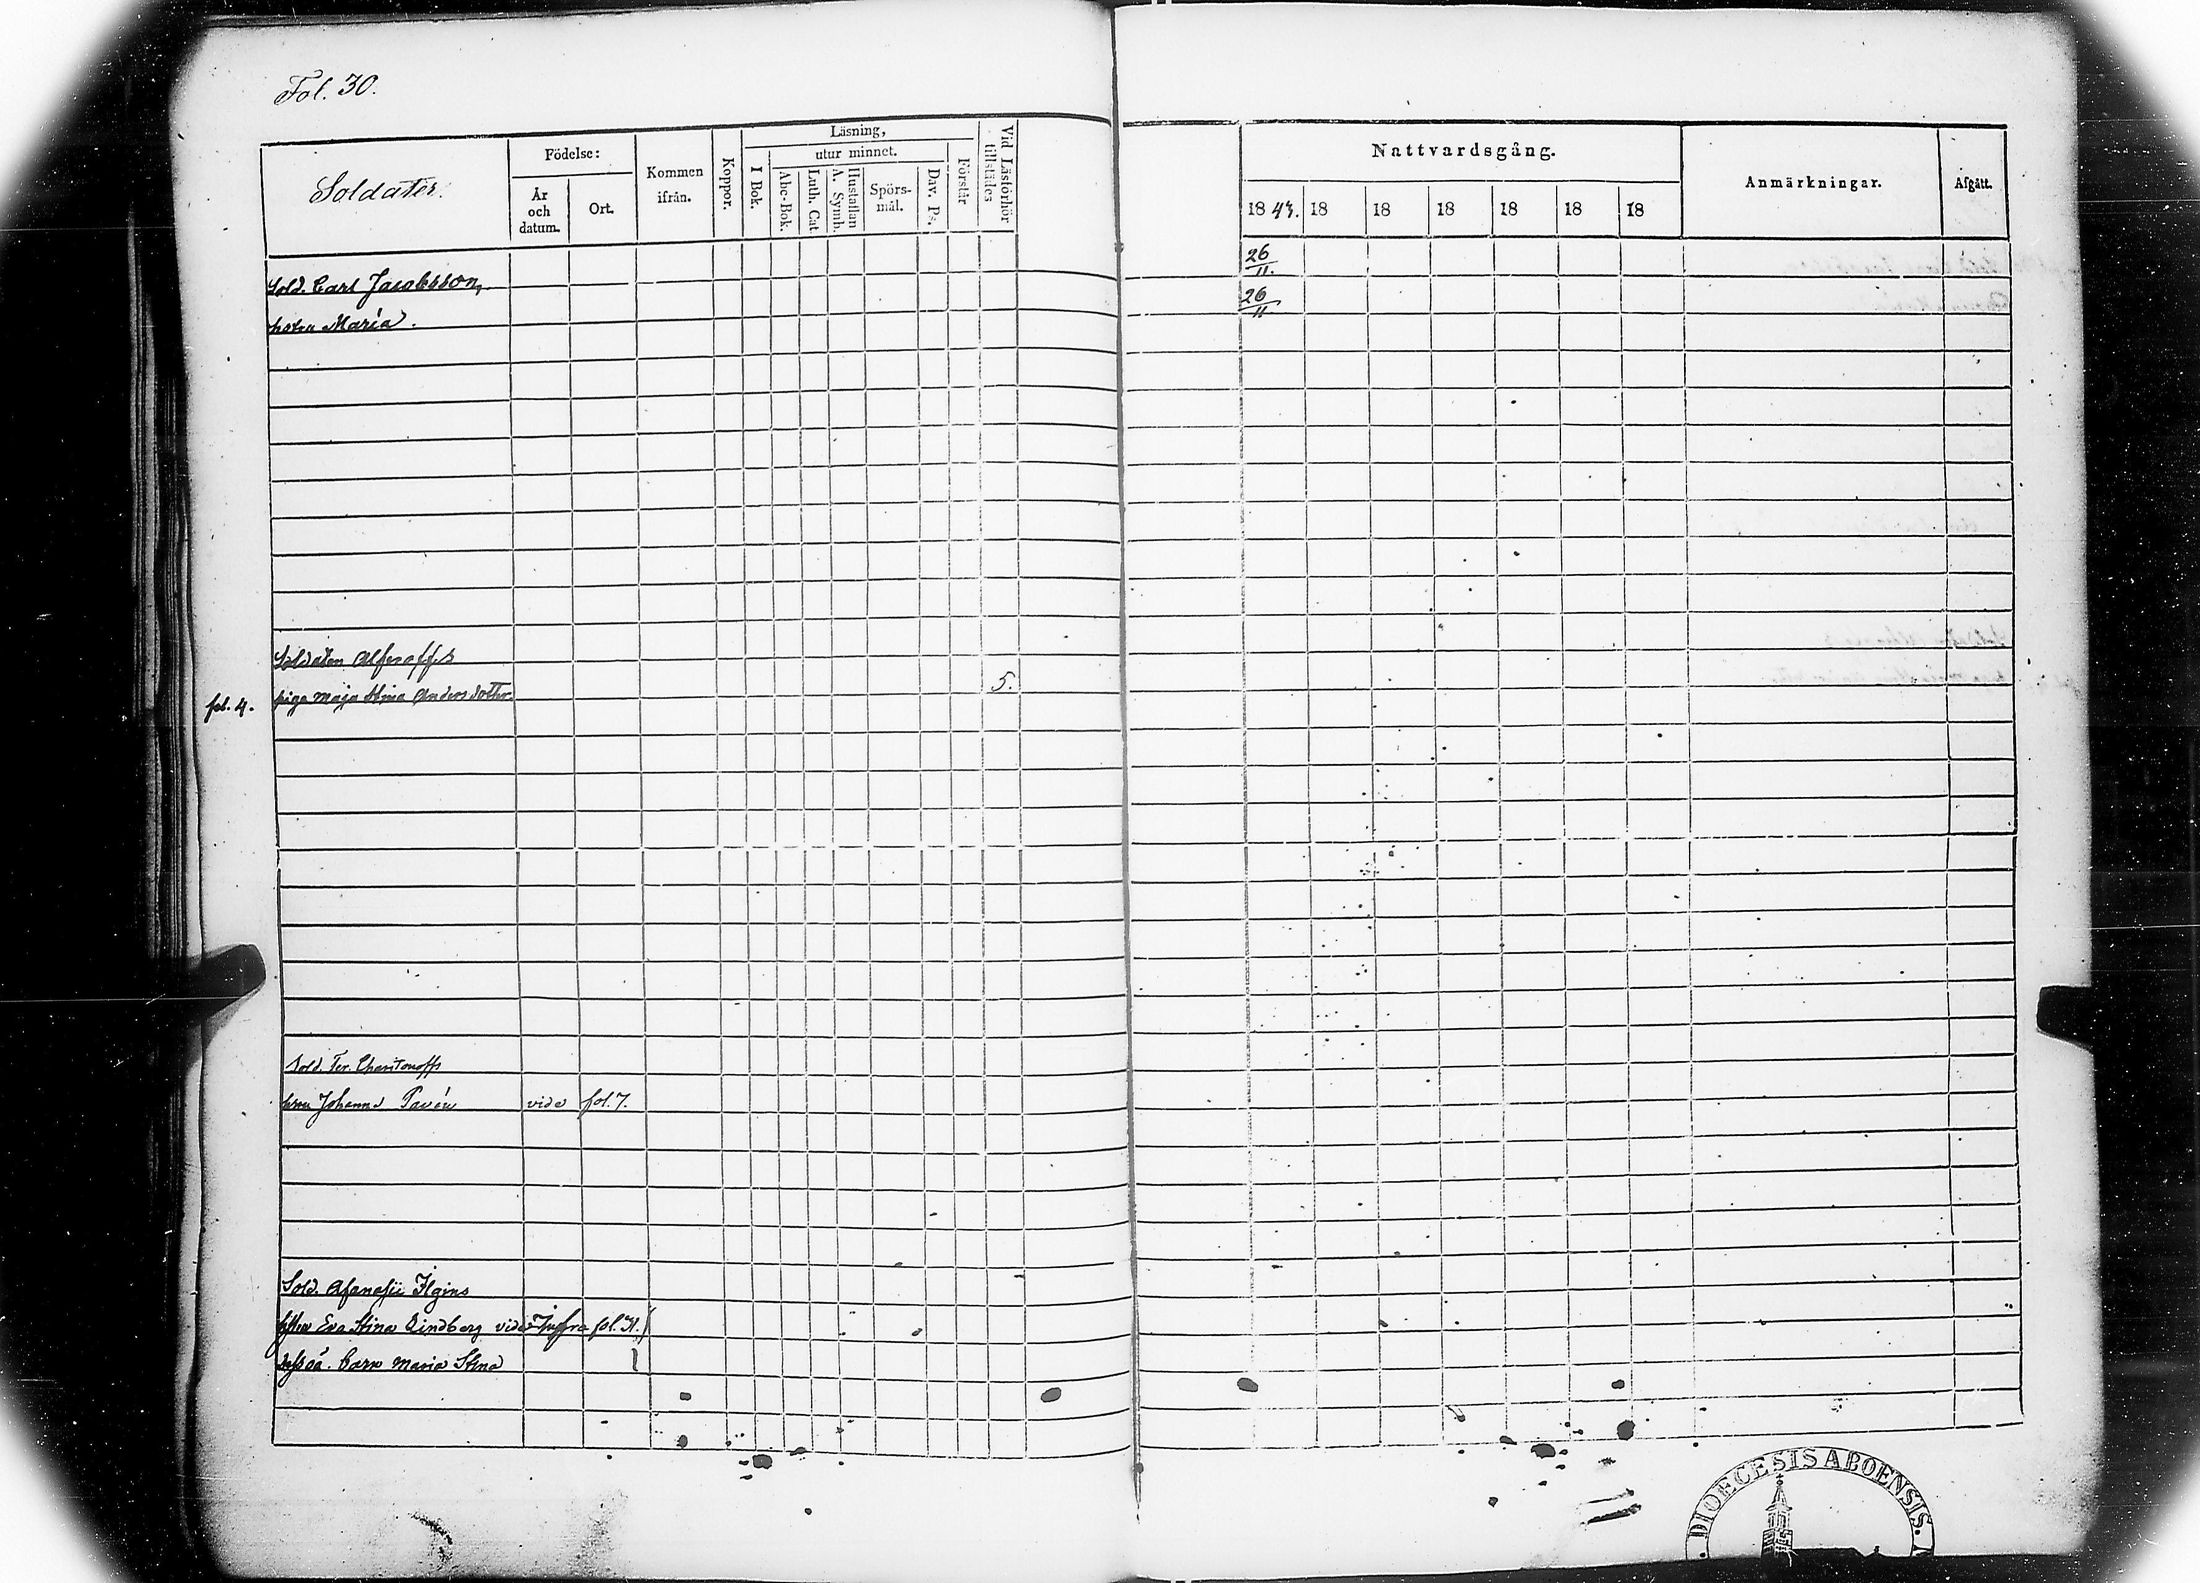 Fol. 30.
Soldater.
Födelse:
År och datum.
Ort.
Kommen ifrån.
Koppor.
Läsning,
I Bok.
utur minnet.
Abc-Bok.
Luth. Cat
Hustaflan A. Symb.
Spörsmål.
Dav. Ps.
Förstår
Vid Läsförhör tillstädes
Nattvardsgång.
18 43. 18 18 18 18 18 18
Anmärkningar.
Afgått.
Sold. Carl Jacobsson, 26/11.
hstru Maria. 26/11
Soldaten Alferoffs
fol. 4. piga Maja Stina Andersdotter. 5.
Sold. Ter. Charitonoffs
hstru Johanna Pavén vide fol. 7.
Sold. Afanasii Ilgins
hstru Eva Stina Lindberg vide Infra fol. 31.
dess oä. barn Maria Stina
DIOECESIS ABOENSIS.